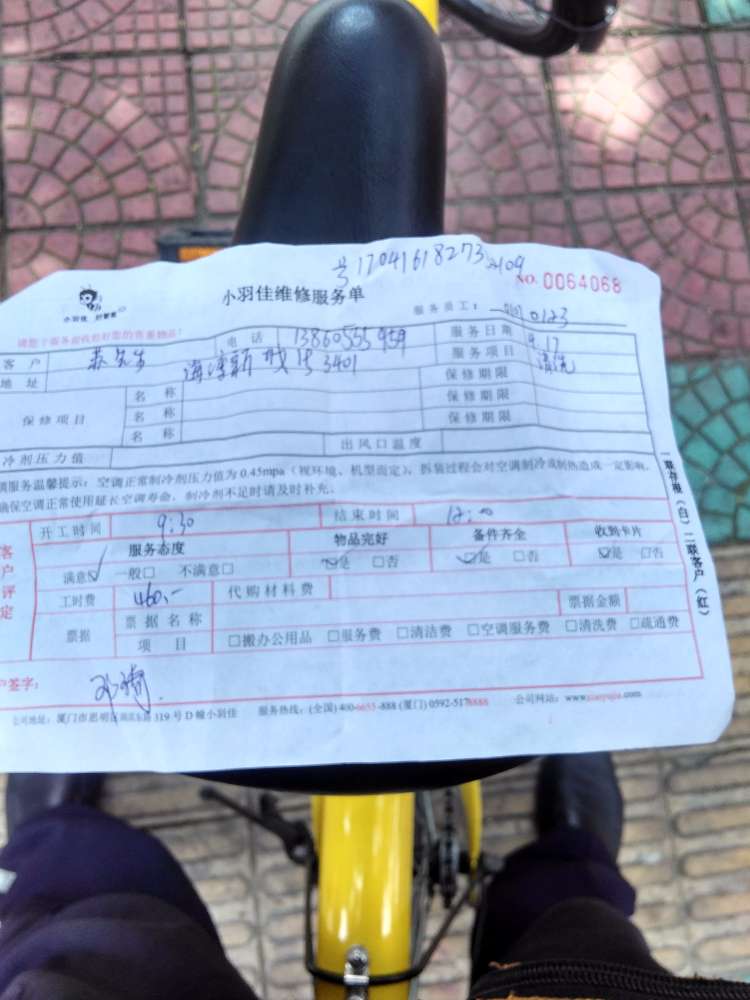 号17041618273 2109
小羽佳维修服务单
NO. 0064068
小羽佳 好管家
服务员工: 0123
请您于服务前收拾好您的贵重物品!
客户 苏先生 电话 13860555959 服务日期 9.17
地址 3401 服务项目 清洗
保修项目 名称 保修期限
名称 保修期限
名称 保修期限
冷剂压力值 出风口温度
服务温馨提示: 空调正常制冷剂压力值为0.45mpa (视环境、机型而定), 拆装过程会对空调制冷或制热造成一定影响,
确保空调正常使用延长空调寿命, 制冷剂不足时请及时补充。
开工时间 9:30 结束时间 12:00
客户评定
服务态度 物品完好 备件齐全 收到卡片
满意☑ 一般□ 不满意□ ☑是 □否 ☑是 □否 ☑是 □否
工时费 460.- 代购材料费
票据 票据名称 票据金额
项目 □搬办公用品 □服务费 □清洁费 □空调服务费 □清洗费 □疏通费
户签字:
公司地址: 厦门市思明区湖滨东路319号D幢小羽佳 服务热线: (全国) 400-6655-888 (厦门) 0592-5178888 公司网站: www.xiaoyujia.com
一联存根(白)二联客户(红)